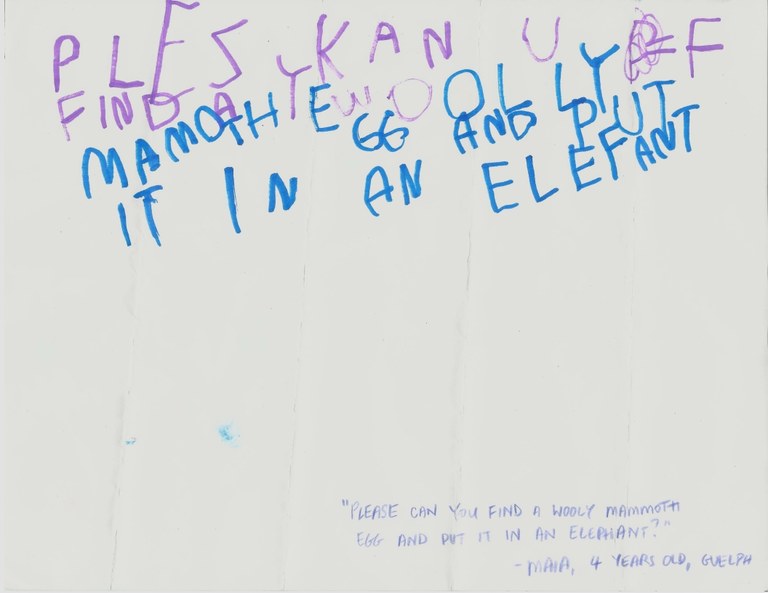 PLES KAN U F
FIND A Y WOOLLY
MAMOTH EGG AND PUT
IT IN AN ELEFANT
"PLEASE CAN YOU FIND A WOOLY MAMMOTH
EGG AND PUT IT IN AN ELEPHANT?"
- MAIA, 4 YEARS OLD, GUELPH